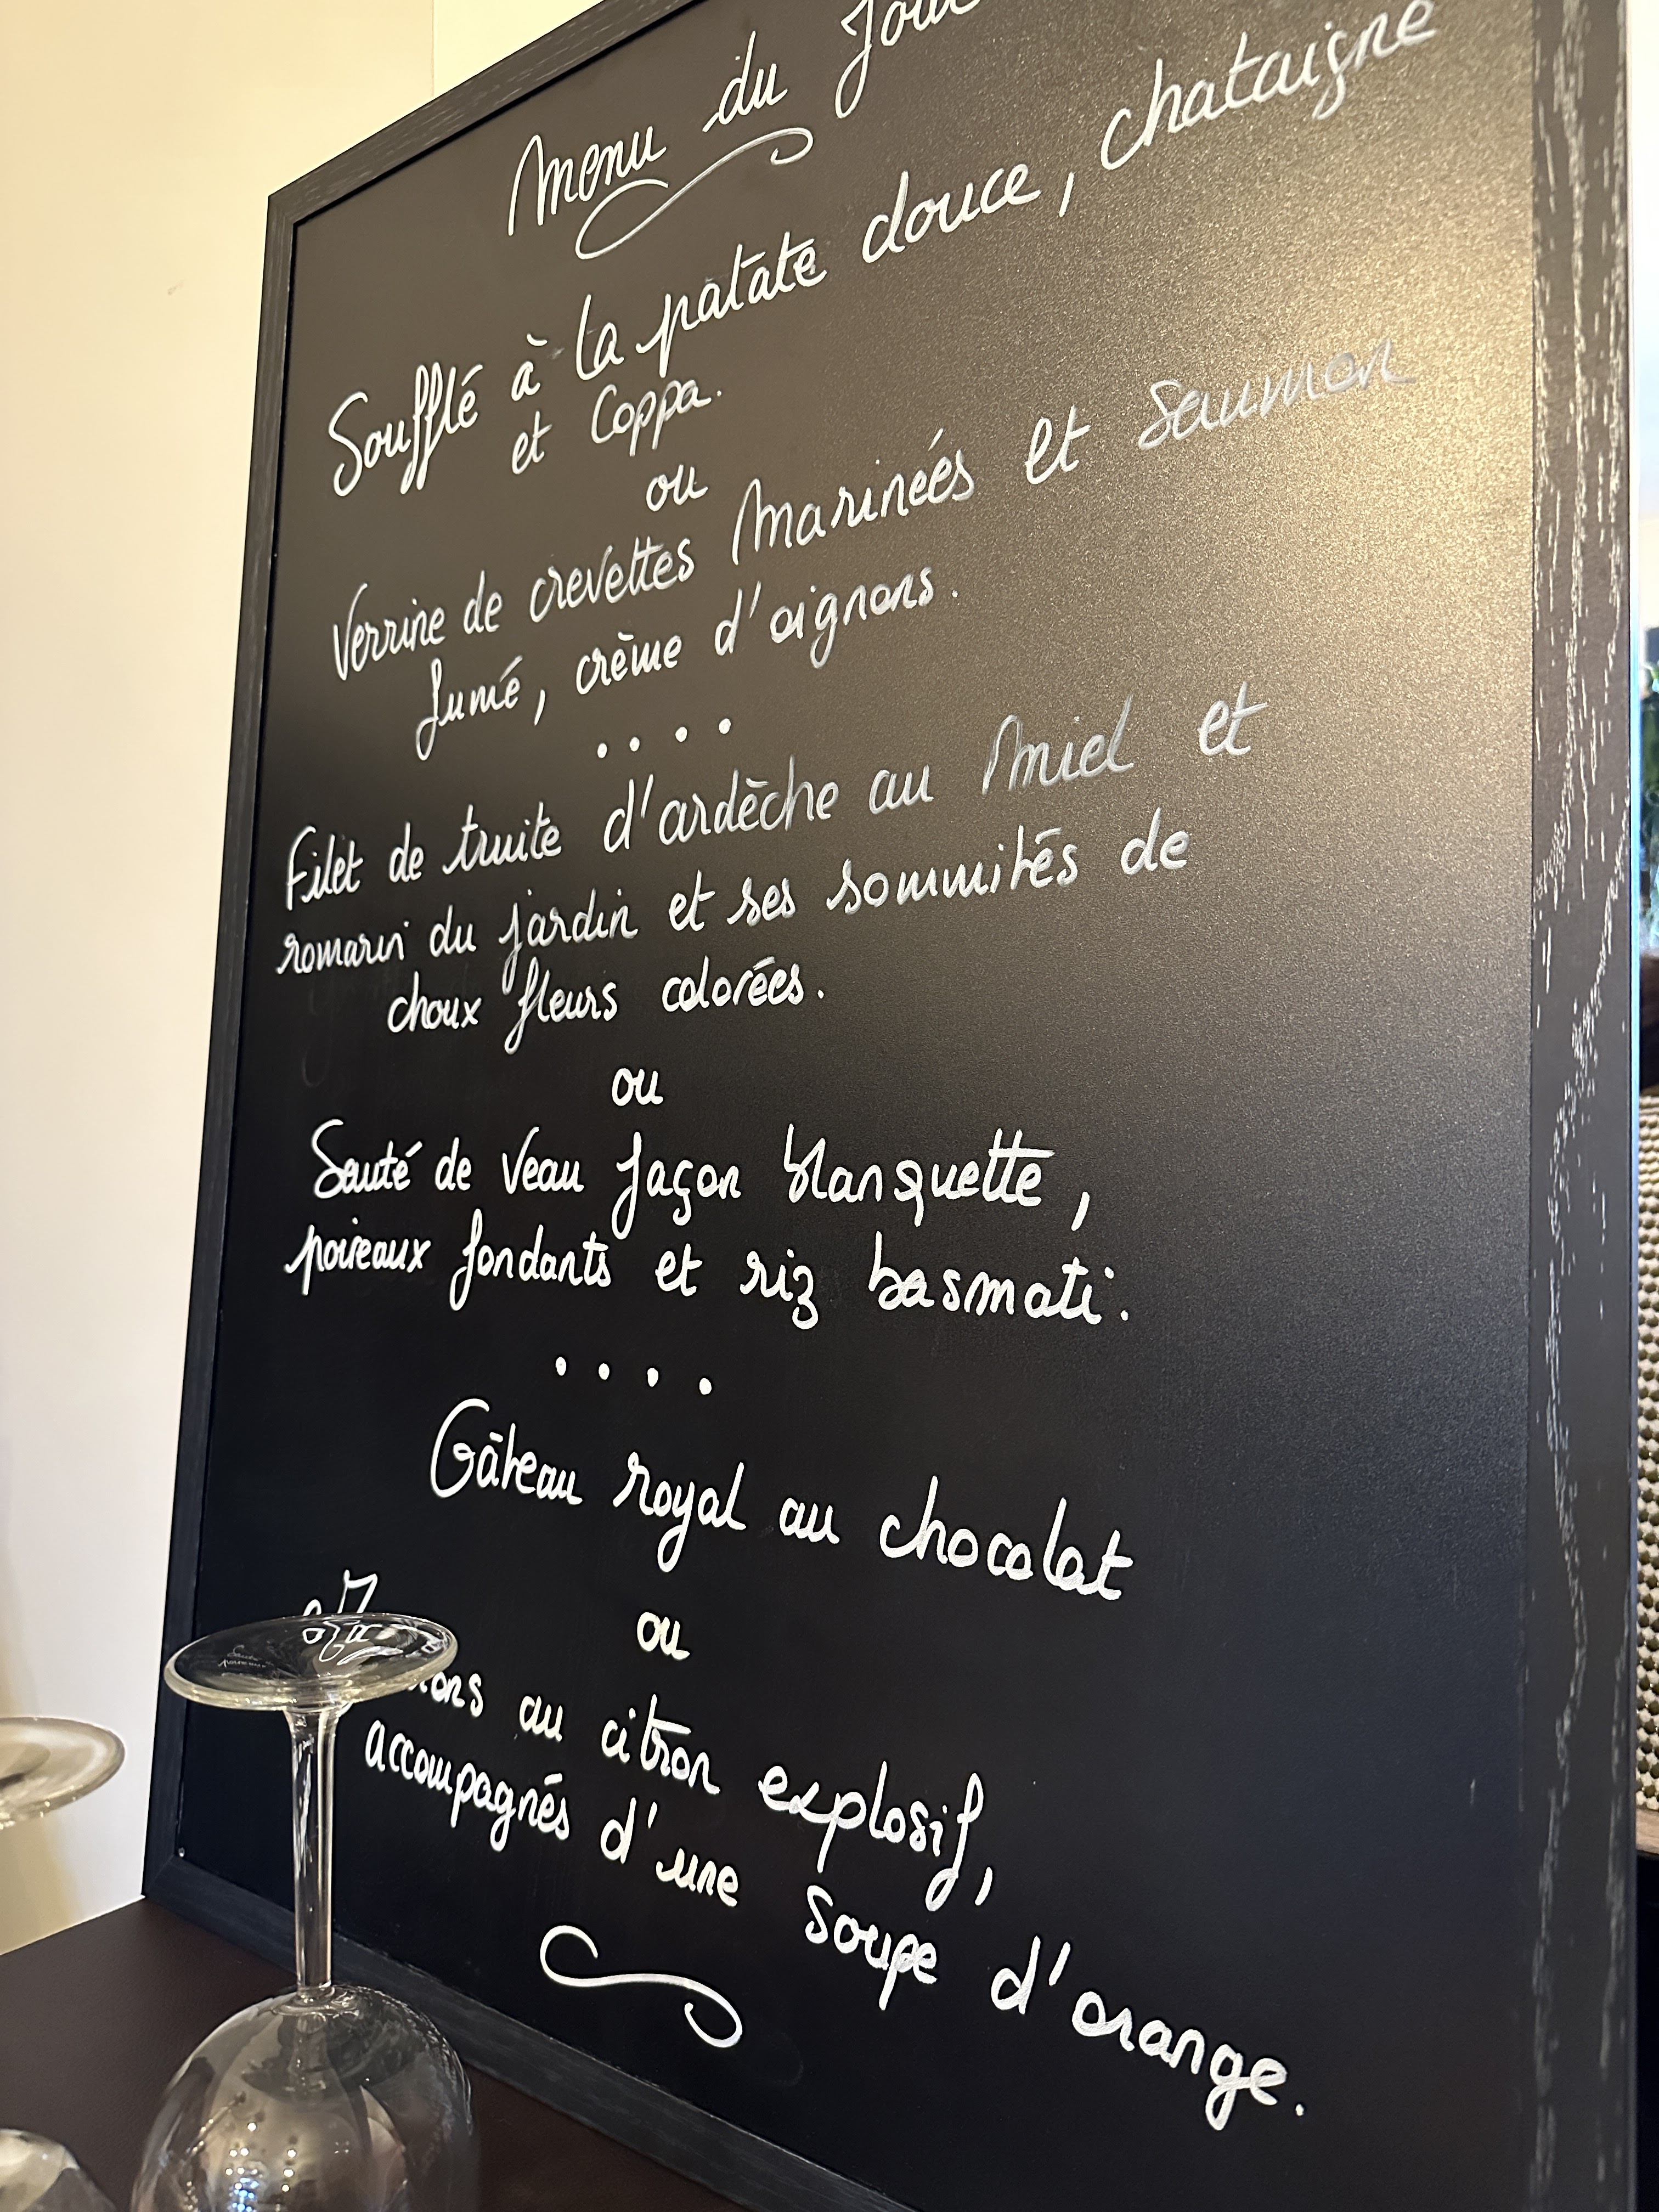 Menu du Jour
Soufflé à la patate douce, chataigne
et Coppa.
ou
Verrine de crevettes Marinées et Saumon
fumé, crème d'oignons.
....
Filet de truite d'ardèche au Miel et
romarin du jardin et ses sommités de
choux fleurs colorées.
ou
Sauté de Veau façon blanquette,
poireaux fondants et riz basmati.
....
Gâteau royal au chocolat
ou
au citron explosif,
accompagnés d'une Soupe d'orange.